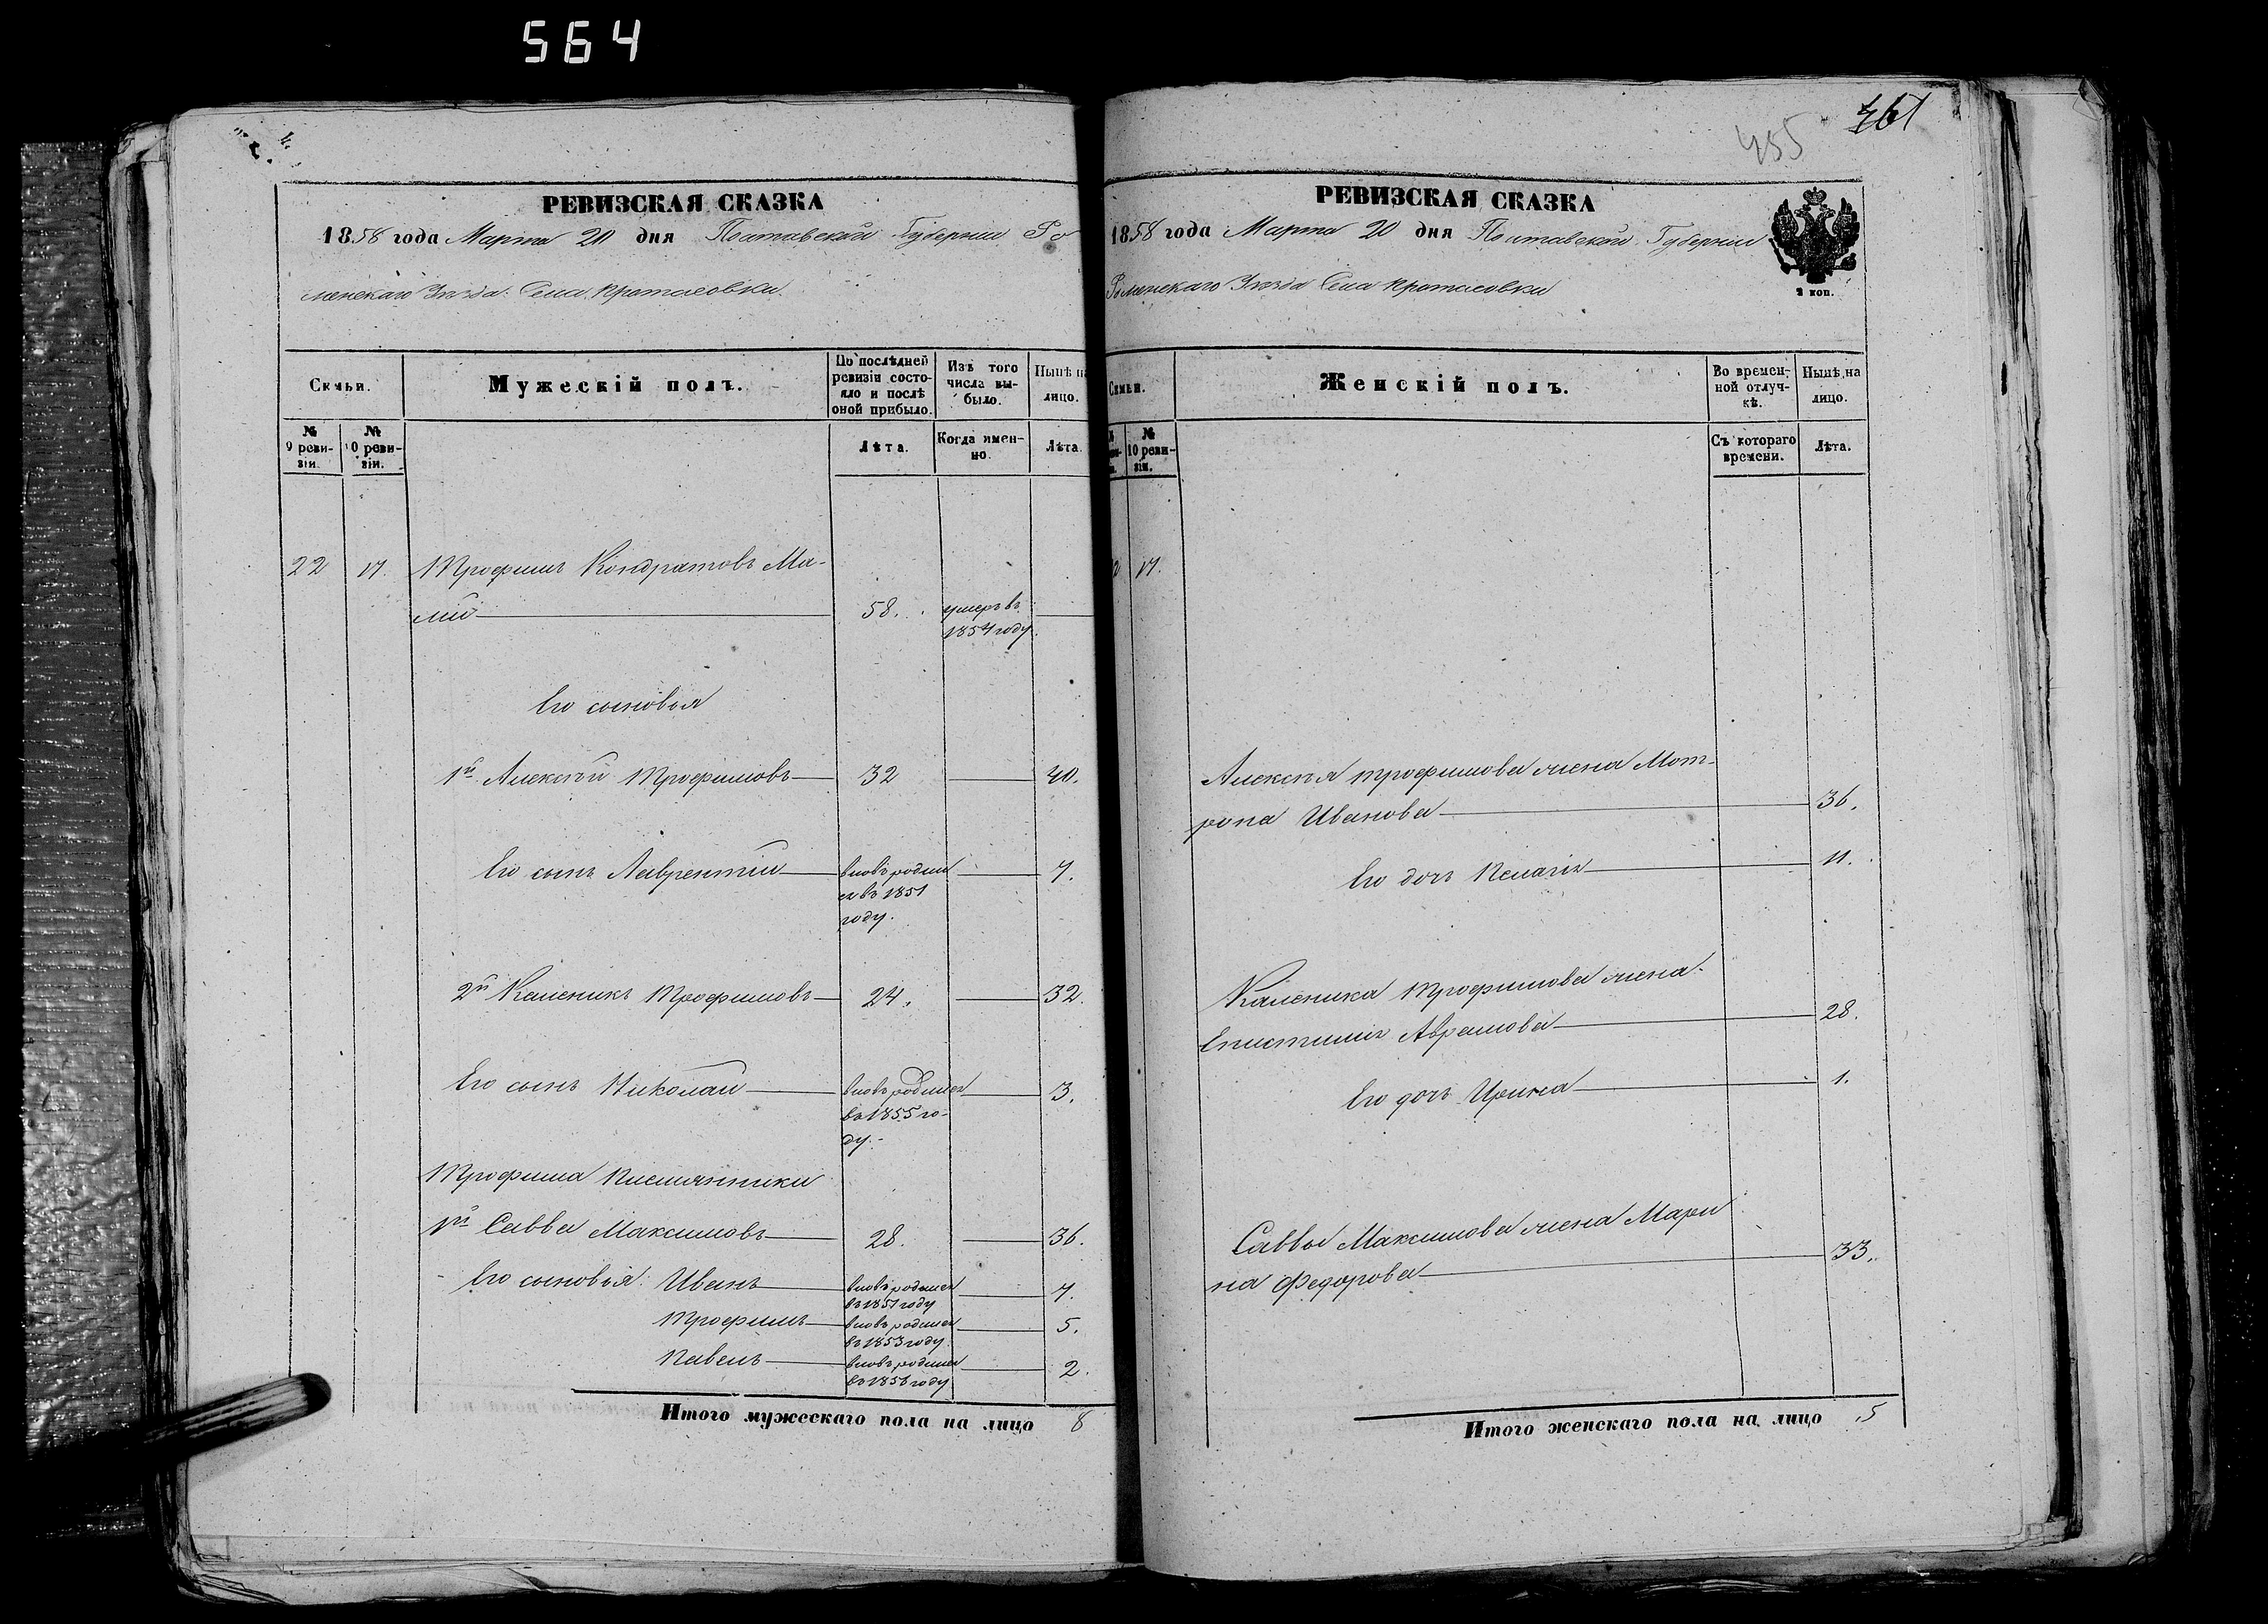 564
4.
РЕВИЗСКАЯ СКАЗКА
1858 года Марта 20 дня Полтавской Губернии Ро
менскаго Уезда Села Протасовки
Семьи.
Мужескій полъ.
По послѣдней ревизіи состояло и послѣ оной прибыло.
Изъ того числа выбыло.
Нынѣ на лицо.
№ 9 ревизіи.
№ 10 ревизіи.
Лѣта.
Когда именно.
Лѣта.
22 17. Трофимъ Кондратовъ Ма-
лій 58. умеръ въ
1854 году.
Его сыновья
1й Алексѣй Трофимовъ 32 40.
Его сынъ Лаврентій вновь родил 7.
ся въ 1851
году.
2й Каленикъ Трофимовъ 24. 32.
Его сынъ Николай вновь родился 3.
въ 1855 го-
ду.-
Трофима племянники
1й Савва Максимовъ 28. 36.
Его сыновья: Иванъ вновь родился 7.
въ 1851 году
Трофимъ вновь родился 5.
въ 1853 году
Павелъ вновь родился 2.
въ 1856 году
Итого мужескаго пола на лицо 8
455 461
РЕВИЗСКАЯ СКАЗКА
1858 года Марта 20 дня Полтавской Губернии
Роменскаго Уезда Села Протасовки
2 коп.
Семьи.
Женскій полъ.
Во временной отлучкѣ.
Нынѣ на лицо.
10 ревизіи.
Съ котораго времени.
Лѣта.
2 17.
Алексея Трофимова жена Мот-
рона Иванова 36.
Его дочь Пелагия 11.
Каленика Трофимова жена
Епистимия Аврамова 28.
Его дочь Ирина 1.
Саввы Максимова жена Мари
на Федорова 33.
Итого женскаго пола на лицо 5